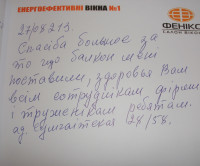 ЕНЕРГОЕФЕКТИВНІ ВІКНА №1
ФЕНІКС
САЛОН ВІКОН
27/08 213.
Спасіба большоє за
то що балкон мені
поставили, здоровья Вам
всім сотрудникам фірми
и труженікам ребятам.
сумгаитская 24/58.